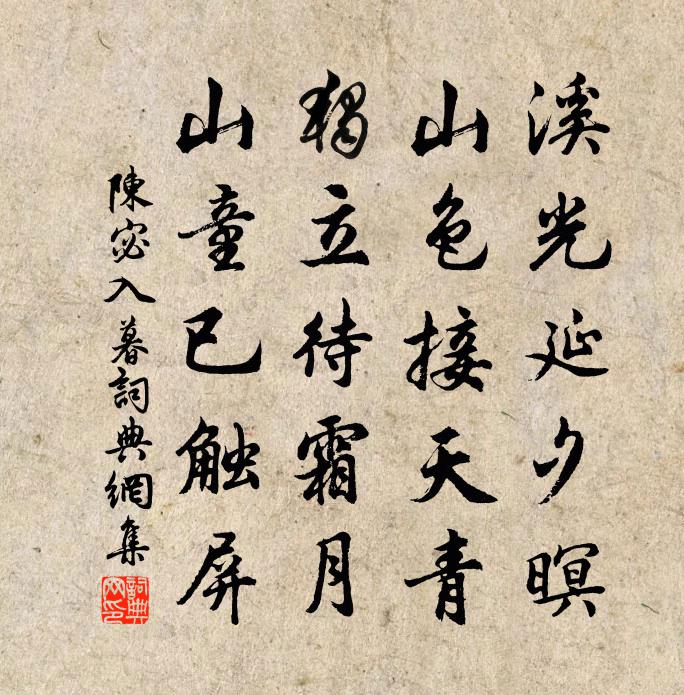 溪光延夕暝
山色接天青
独立待霜月
山童已触屏
陳宓入暮詞典網集
詞典網印